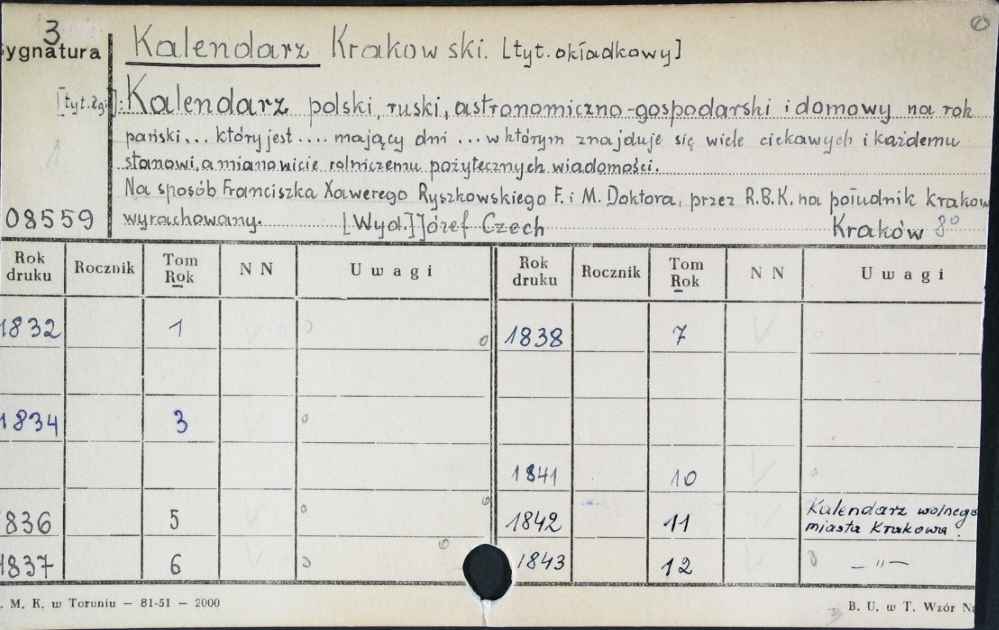 3
ygnatura
Kalendarz Krakowski. [tyt. okładkowy]
[tyt. zgł]: Kalendarz polski, ruski, astronomiczno-gospodarski i domowy na rok
pański... który jest .... mający dni ... w którym znajduje się wiele ciekawych i każdemu
stanowi, a mianowicie rolniczemu pożytecznych wiadomości.
Na sposób Franciszka Xawerego Ryszkowskiego F. i M. Doktora, przez R.B.K. na południk krakow
08559 wyrachowany. [Wyd.] Józef Czech Kraków 8º
Rok druku Rocznik Tom Rok N N Uwagi Rok druku Rocznik Tom Rok N N Uwagi
1832 1 1838 7
1834 3
1841 10
836 5 1842 11 Kalendarz wolnego
miasta Krakowa.
1837 6 1843 12 — " —
. M. K. w Toruniu — 81-51 — 2000 B. U. w T. Wzór